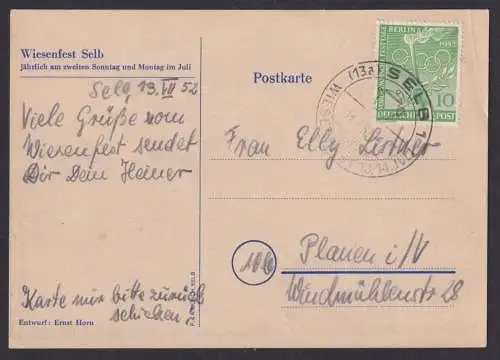 Wiesenfest Selb
jährlich am zweiten Sonntag und Montag im Juli
Selb, 13. VII 52
Viele Grüße vom
Wiesenfest sendet
Dir Dein Heiner
Karte mir bitte zurück
schicken.
Entwurf: Ernst Horn
Postkarte
BERLIN
1952
10
DEUTSCHE POST
(13a) SELB 1
Frau Elly
10b
Plauen i/V
Windmühlenstr 28